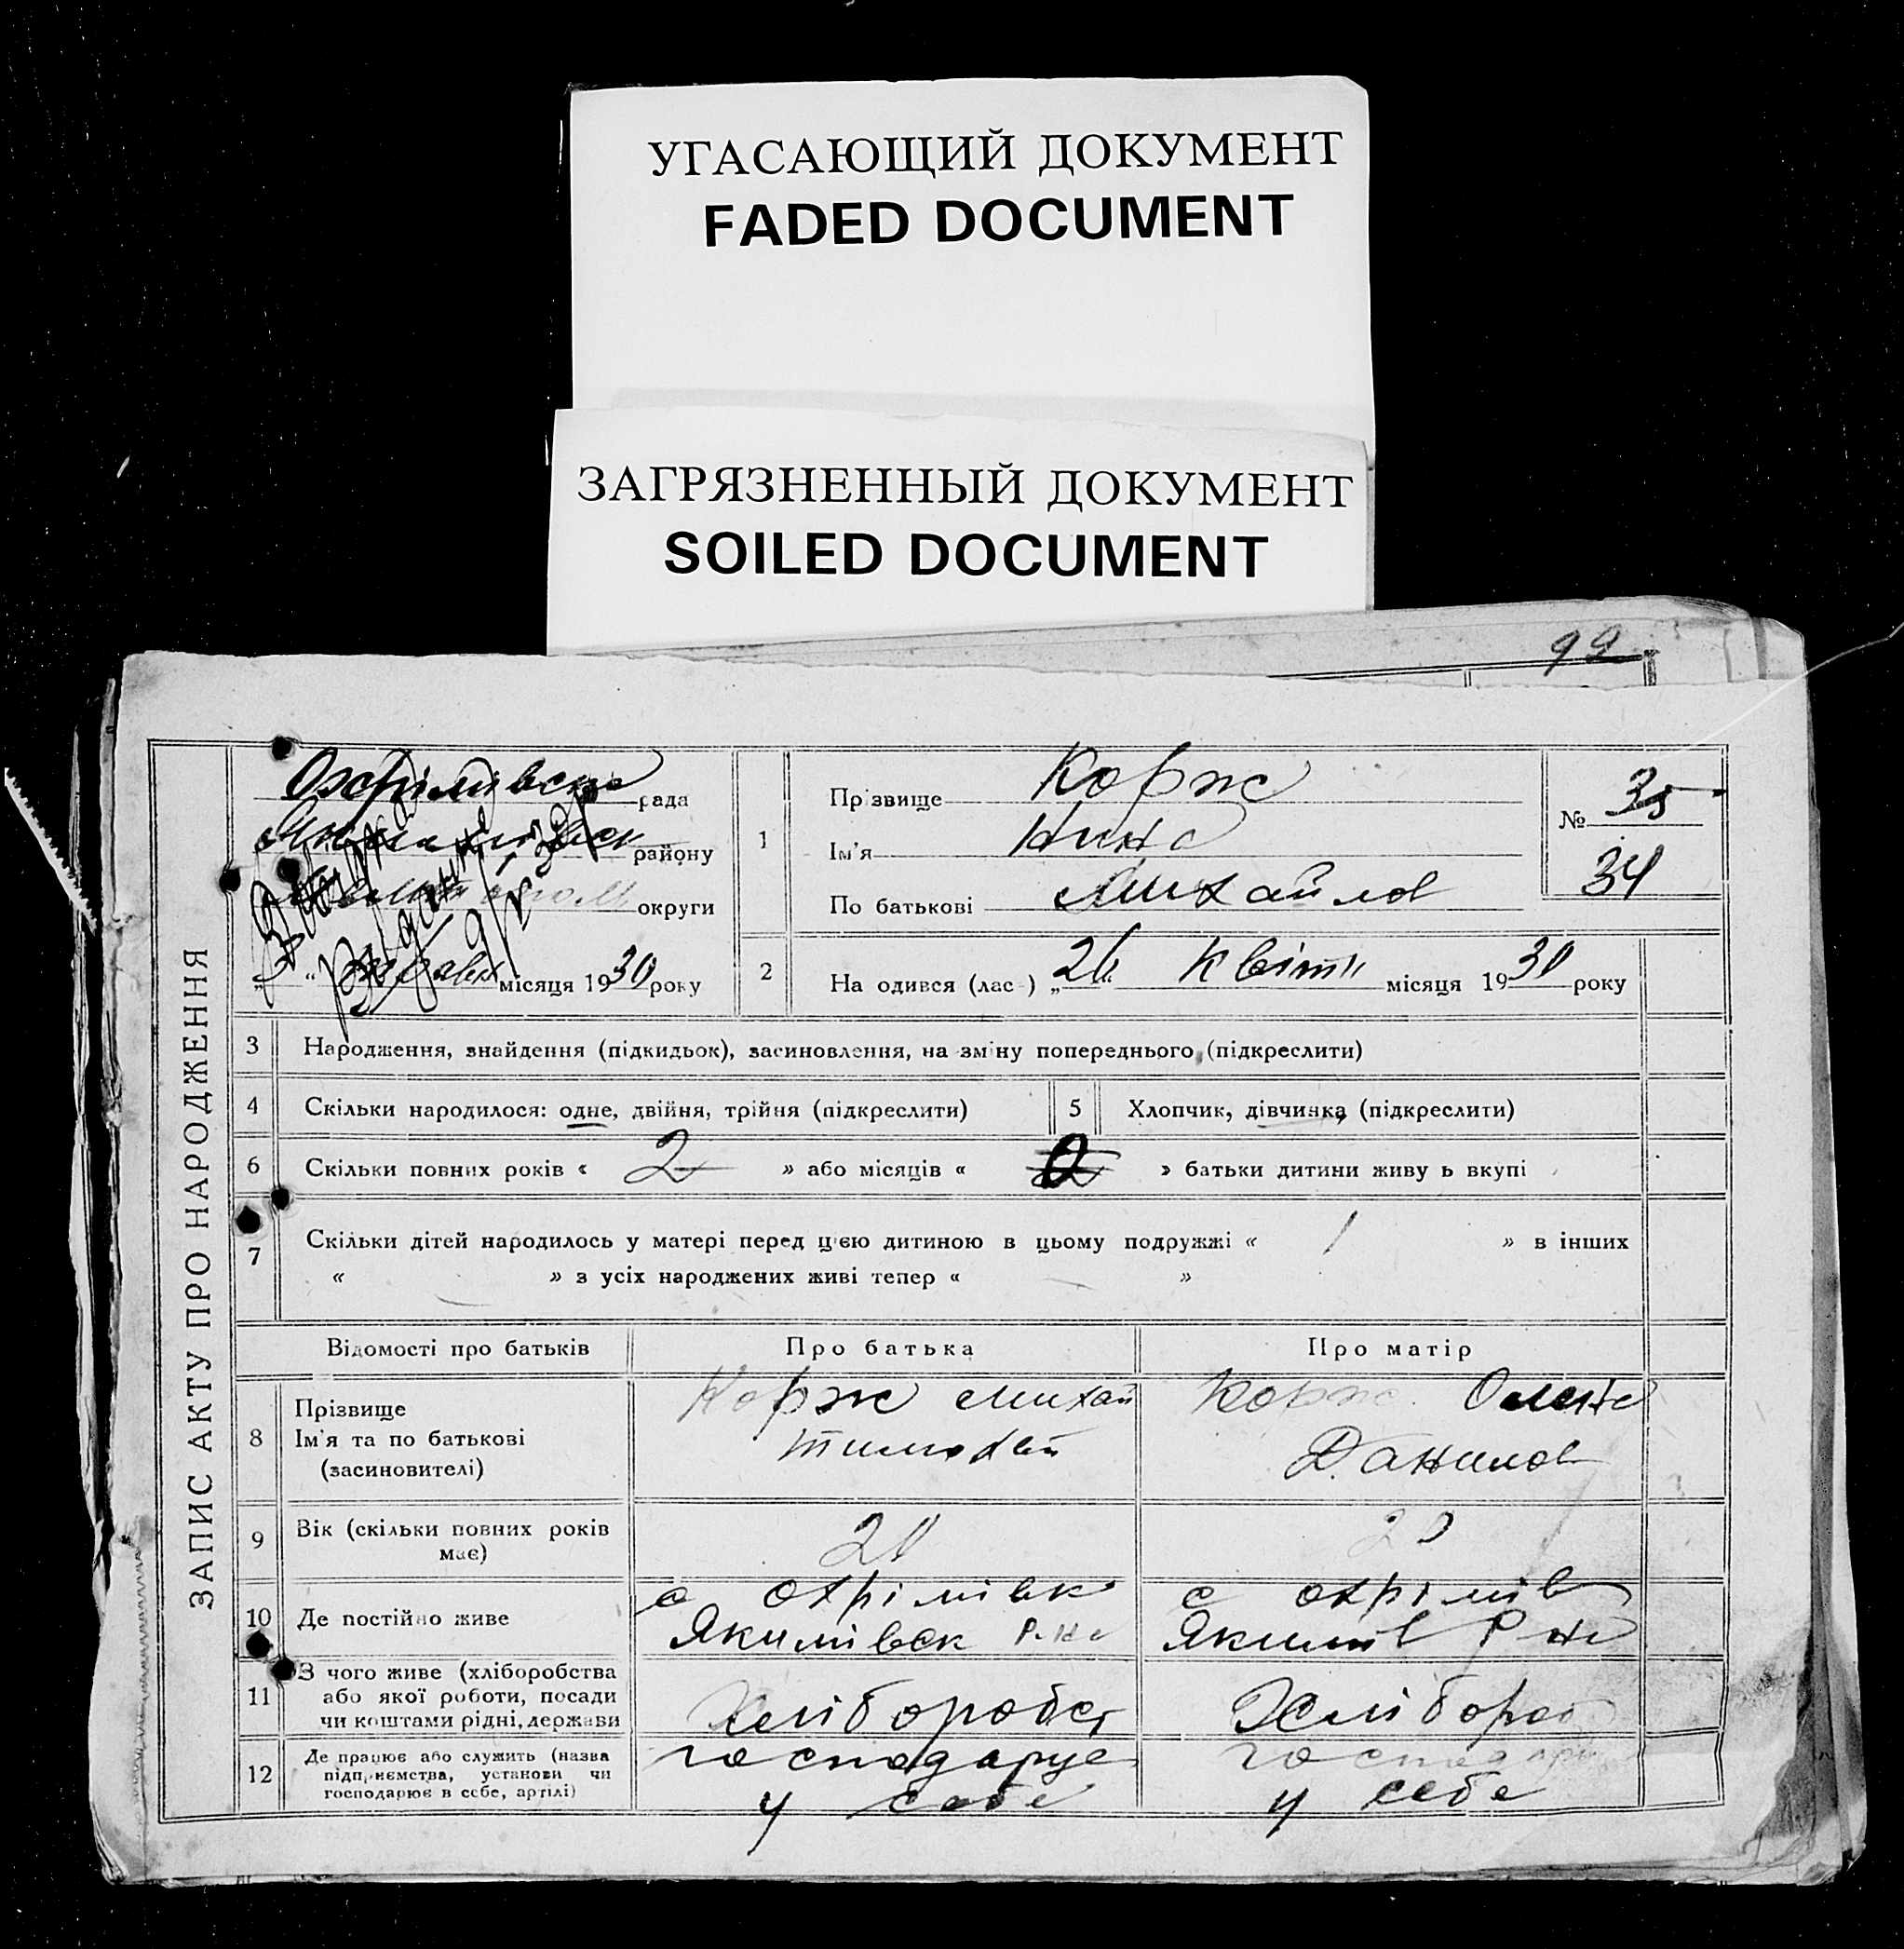 УГАСАЮЩИЙ ДОКУМЕНТ
FADED DOCUMENT
ЗАГРЯЗНЕННЫЙ ДОКУМЕНТ
SOILED DOCUMENT
99
ЗАПИС АКТУ ПРО НАРОДЖЕННЯ
Охрімівська рада
району
округи
місяця 1930 року
1
Прізвище Корж
Ім'я Нина
По батькові Михайлов
№ 35
34
2
На одився (лас ) „26“ Квітн місяця 1930 року
3 Народження, знайдення (підкидьок), засиновлення, на зміну попереднього (підкреслити)
4 Скільки народилося: одне, двійня, трійня (підкреслити)
5 Хлопчик, дівчинка (підкреслити)
6 Скільки повних років « 2 » або місяців « » батьки дитини живу ь вкупі
7 Скільки дітей народилось у матері перед цією дитиною в цьому подружжі « 1 » в інших
« » з усіх народжених живі тепер « »
Відомості про батьків Про батька Про матір
8 Прізвище
Ім'я та по батькові
(засиновителі)
Корж Михай
Тимофей
Корж Олена
Данилов
9 Вік (скільки повних років
має)
20
10 Де постійно живе
с Охрімівк
Якимівск Р-на
с Охрімів
Якимів Р на
11 З чого живе (хліборобства
або якої роботи, посади
чи коштами рідні, держави
Хліборобст
Хлібороб
12 Де працює або служить (назва
підприємства, установи чи
господарює в себе, артілі)
господарує
у себе
господарує
у себе